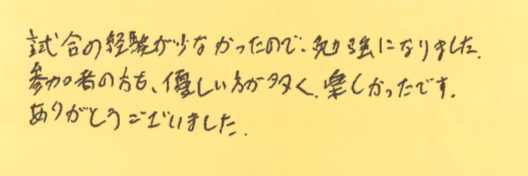 試合の経験が少なかったので、勉強になりました。
参加者の方も、優しい方が多く、楽しかったです。
ありがとうございました。